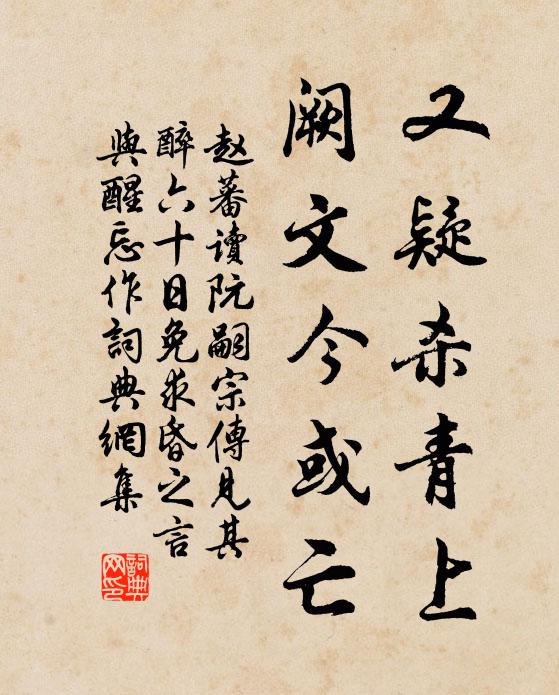 又疑杀青上
阙文今或亡
赵蕃读阮嗣宗傳見其
醉六十日免求昏之言
與醒忘作詞典網集
詞典
网印